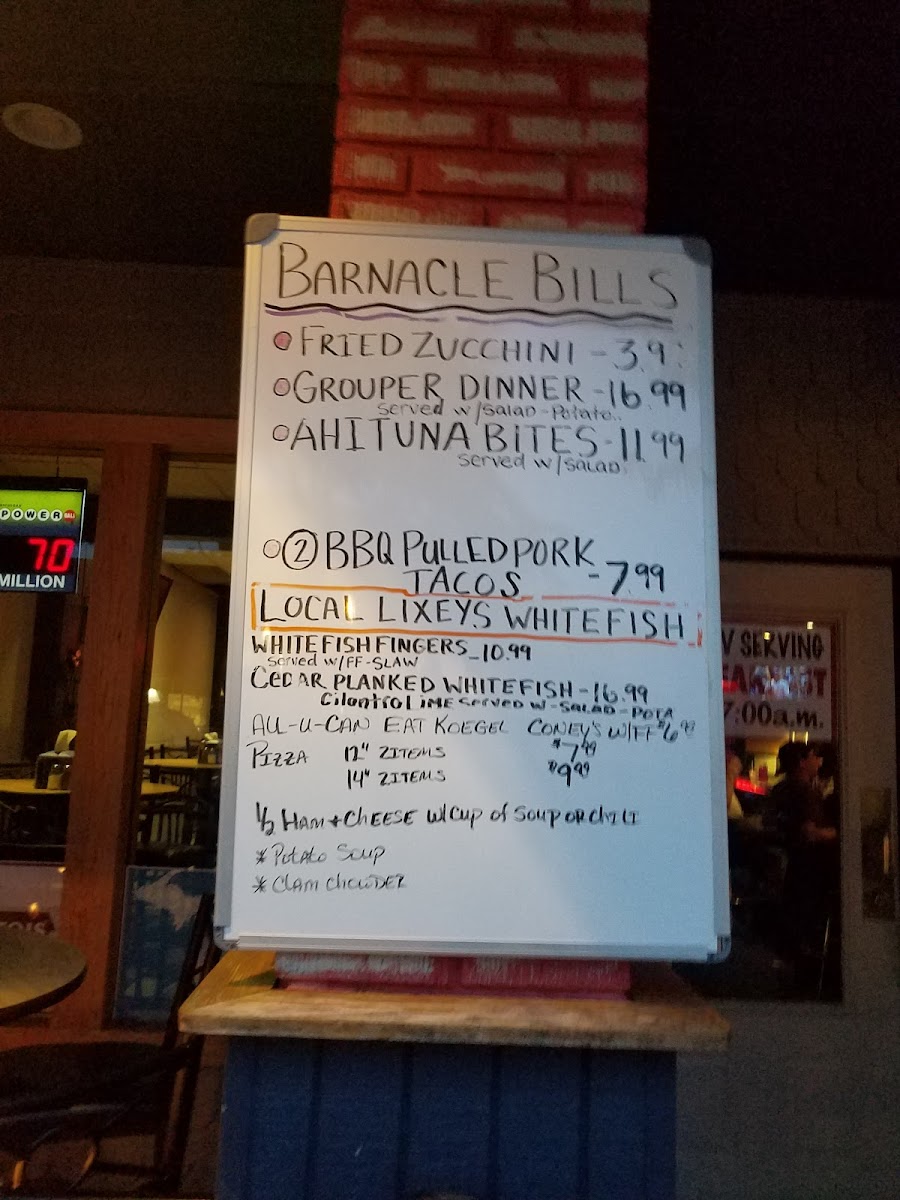 BARNACLE BILLS
FRIED ZUCCHINI - 3.9
GROUPER DINNER - 16.99
Served w/SALAD - Potato..
AHI TUNA BITES - 11.99
Served w/SALAD
② BBQ PULLED PORK
TACOS - 7.99
LOCAL LIXEYS WHITEFISH
WHITEFISH FINGERS - 10.99
Served w/FF-SLAW
CEDAR PLANKED WHITEFISH - 16.99
Cilantro Lime Served w-SALAD-POTA
ALL-U-CAN EAT KOEGEL CONEY'S W/FF $6.99
PIZZA 12" 2ITEMS $7.99
14" 2ITEMS $9.99
1/2 HAM + CHEESE W/Cup of SOUP OR CHILI
* Potato Soup
* CLAM CHOWDER
POWER
70
MILLION
SERVING
7:00a.m.